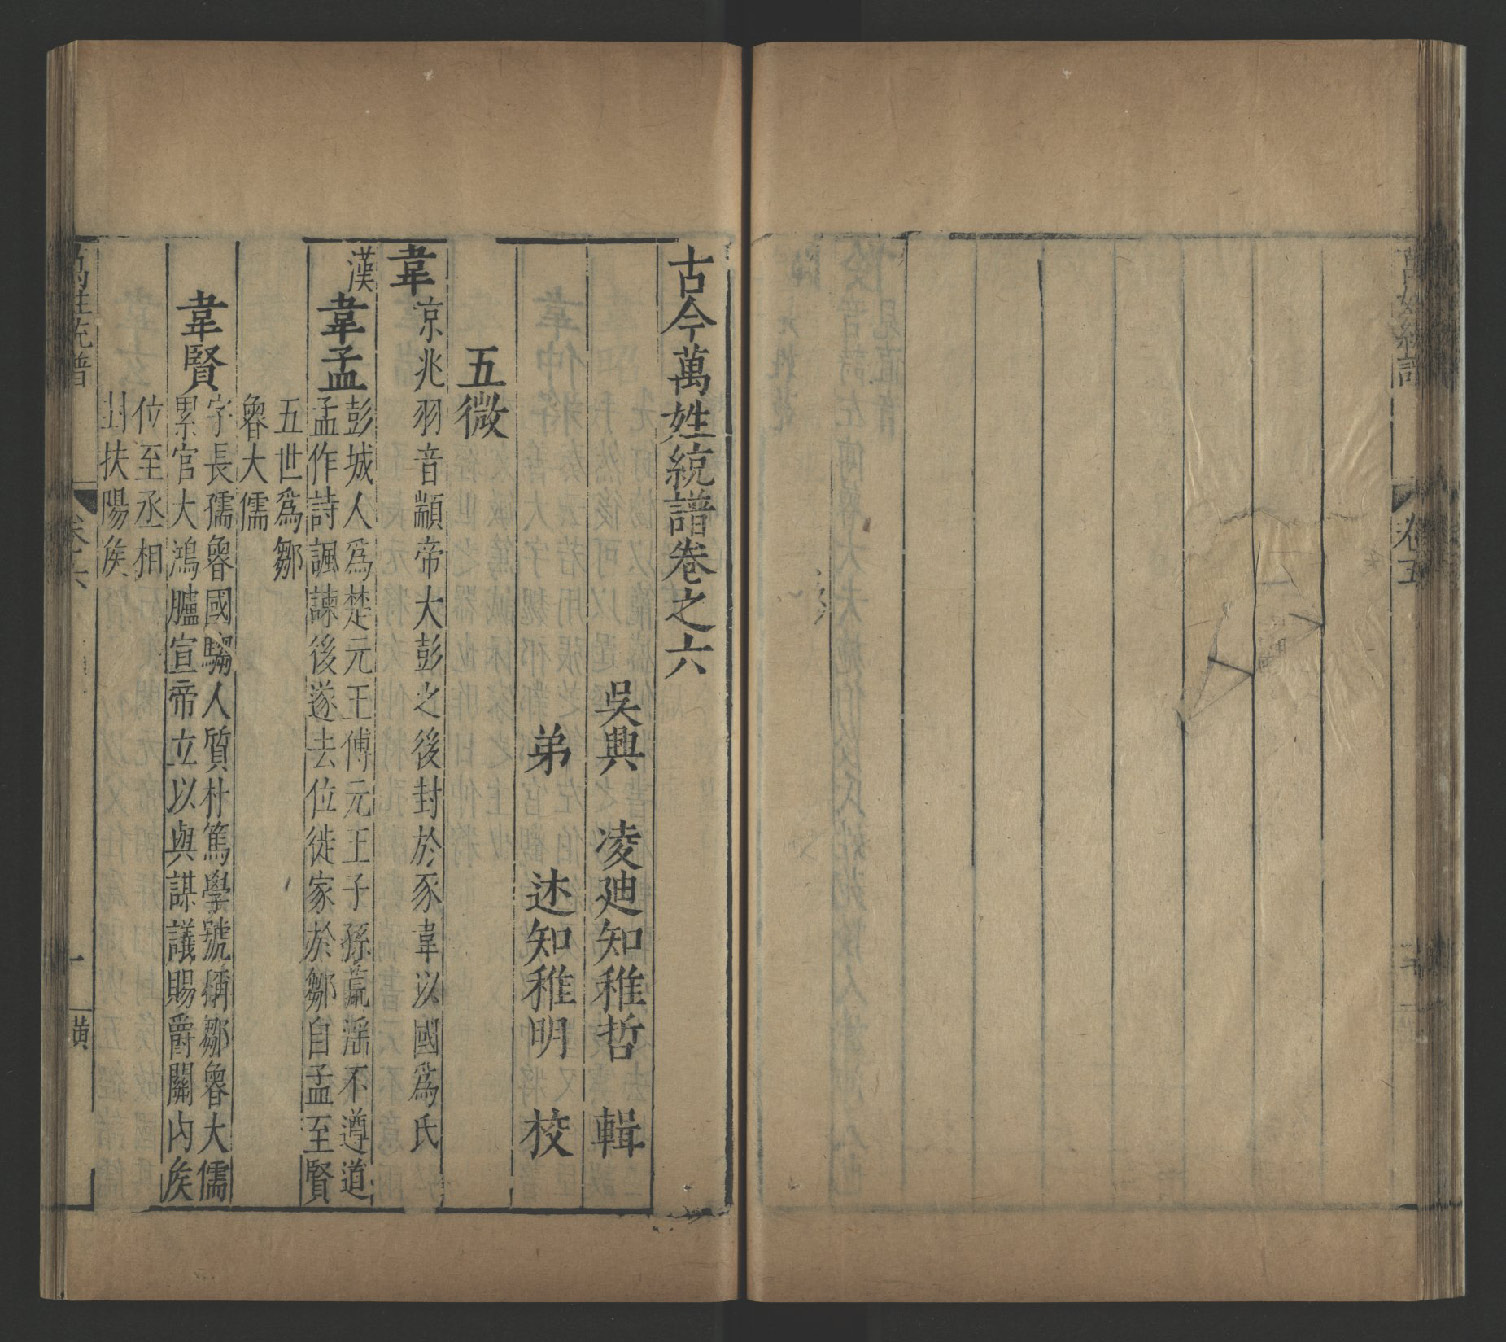 卷五
古今萬姓統譜卷之六
吳興 凌廸知稚哲 輯
弟 述知稚明 校
五微
韋 京兆羽音顓帝大彭之後封於豕韋以國爲氏
漢
韋孟 彭城人爲楚元王傅元王子孫荒滛不遵道
孟作詩諷諫後遂去位徙家於鄒自孟至賢
五世爲鄒
魯大儒
韋賢 字長孺魯國鄒人質朴篤學號稱鄒魯大儒
累官大鴻臚宣帝立以與謀議賜爵關內矦
位至丞相
封扶陽矦
萬姓統譜 卷六 一